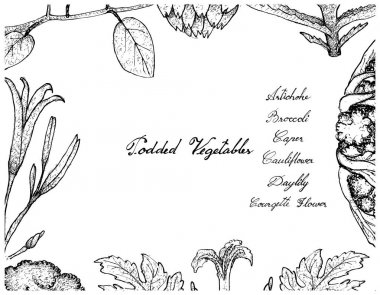 Podded Vegetables
Artichoke
Broccoli
Caper
Cauliflower
Daylily
Courgette Flower